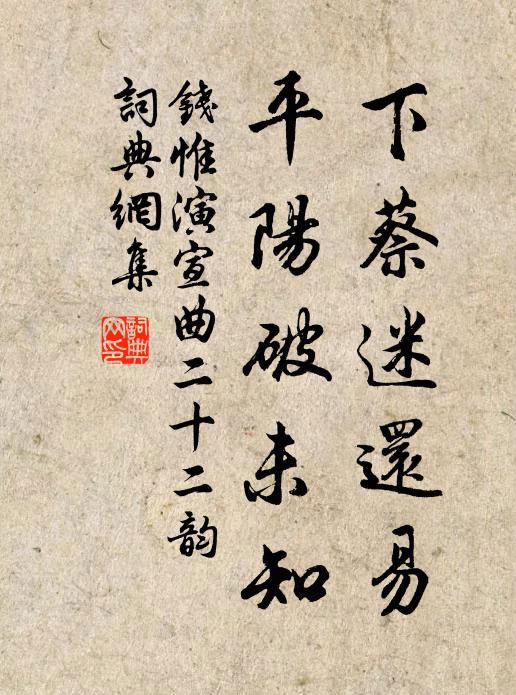 下蔡迷還易
平陽破未知
錢惟演宣曲二十二韵
詞典網集
詞典网印